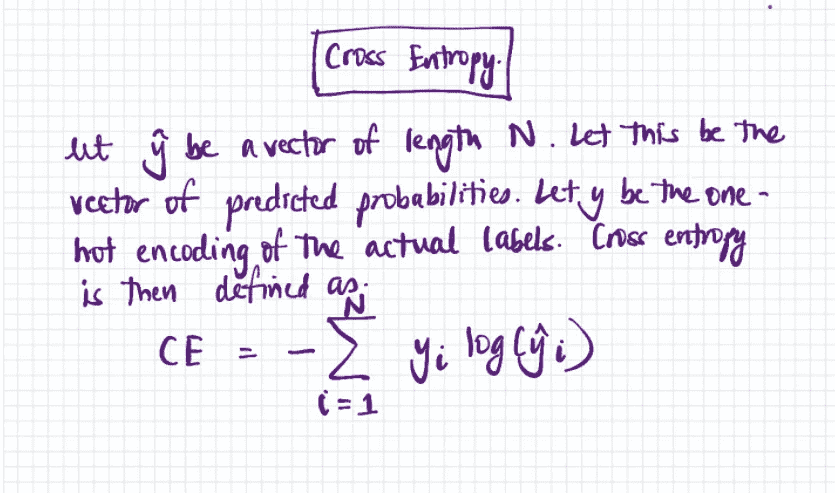 Cross Entropy.
let ŷ be a vector of length N. Let this be the
vector of predicted probabilities. Let y be the one-
hot encoding of the actual labels. Cross entropy
is then defined as.
CE = - N∑i=1 yi log(ŷi)